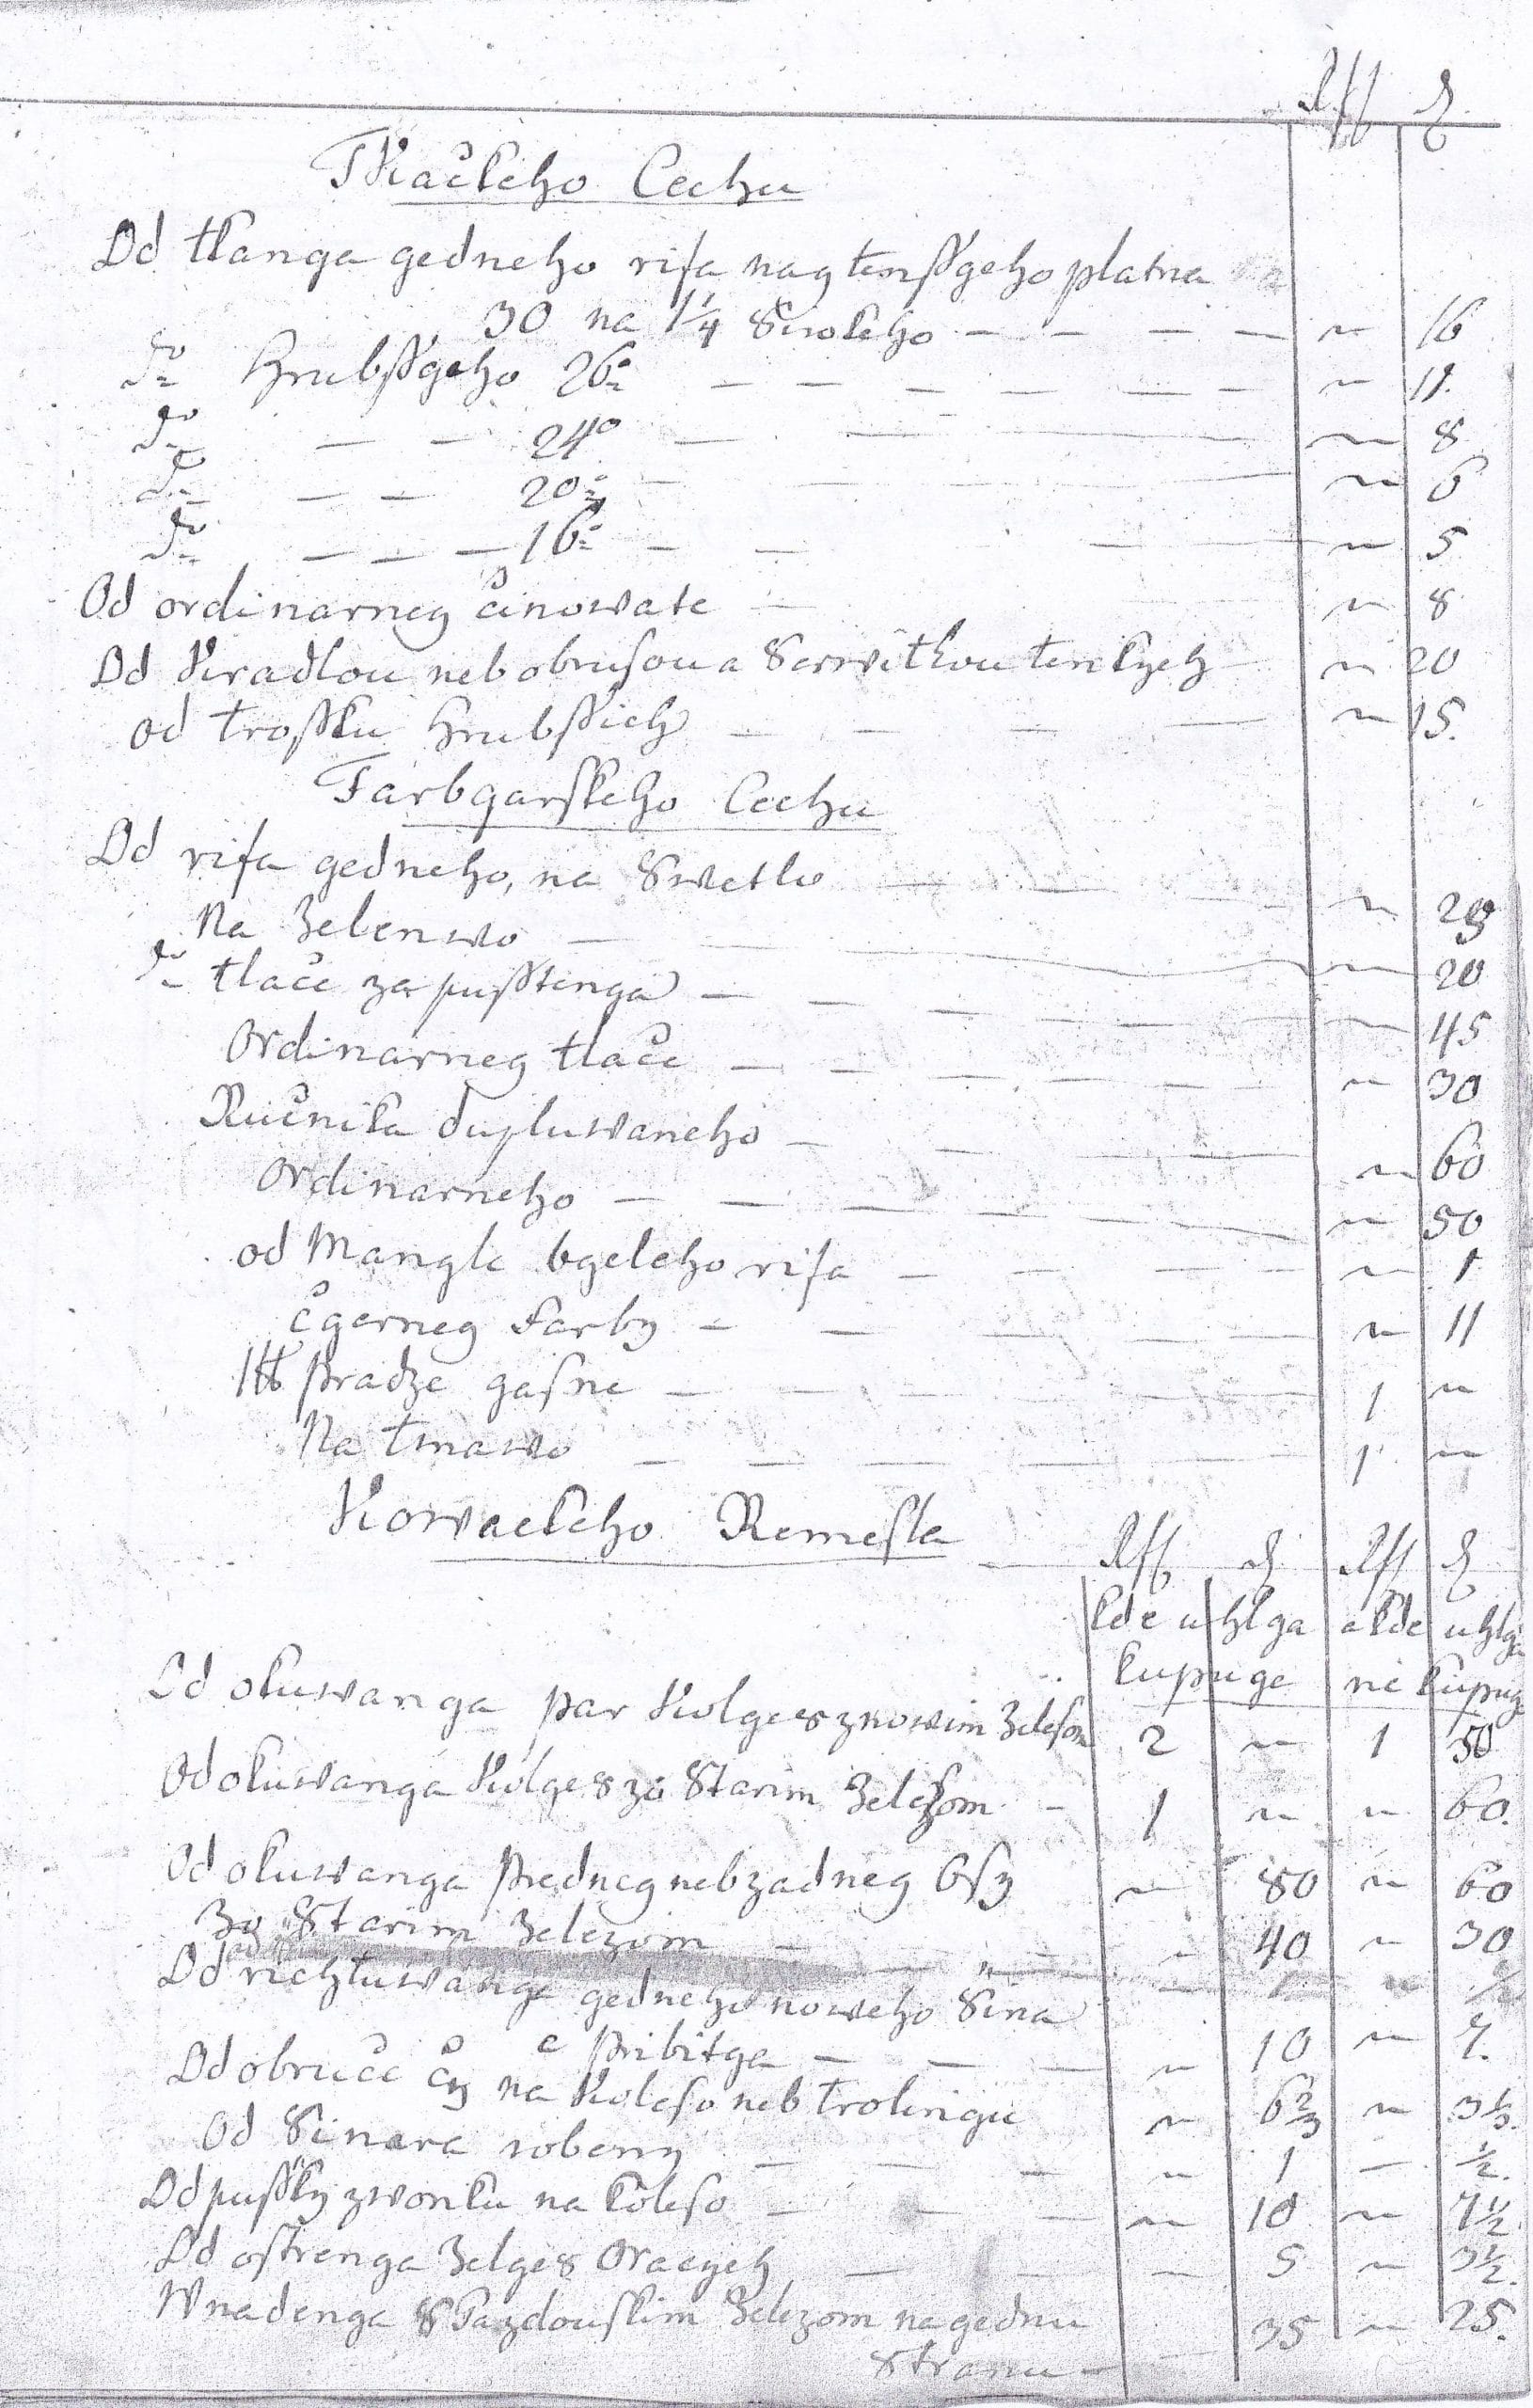 Rf x
Tkačkeho Cechu
Od tkanga gedneho rifa nagtenssgeho platna
30 na 1 1/4 Sirokeho — — — — ~ 16
do Hrubssgeho 26o — — — — — ~ 11.
do — — 24o — — — ~ 8
do — — 20o — — ~ 6
do — — — 16o — — — ~ 5
Od ordinarneg činowate — — ~ 8
Od Kradlou neb obrusou a Serwitkou tenkych ~ 20
od trossku hrubssich — — — — ~ 15.
Farbgarskeho Cechu
Od rifa gedneho, na Swetlo — — — ~
Na Zelenwo — — ~ 20
do tlače za pusstenga — — — — 45
Ordinarneg tlače — — — — ~ 30
Ručnika dupluwaneho — — — ~ 60
Ordinarneho — — — — ~ 50
od Mangle bgeleho rifa — — — — ~ 1
čgerneg Farby — — — — ~ 11
1 ℔ pradze gasne — — — — 1 ~
Na tmawo — — — — 1 ~
Kowackeho Remesla — Rf x Rf x
kde uhlga a kde uhlga
kupuge ne kupug
Od okuwanga par Kolges z nowim Zelesom 2 ~ 1 50
Od okuwanga Kolges zo Starim Zelezom — 1 ~ ~ 60.
Od okuwanga predneg neb zadneg Osy ~ 80 ~ 60
Zo Starim Zelezom — — ~ 40 ~ 30
Od richtuwange gedneho noweho Sina
a pribitga — — — ~ 10 ~ 7.
Od obruče čy na Koleso neb trokrigu ~ 6 2/3 ~ 3 1/3.
Od Sinara robeny — — — ~ 1 — 1/2.
Od pussky zwonku na koleso — — — ~ 10 ~ 7 1/2
Od ostrenga Zelges Oracych — — — 5 ~ 3 1/2.
Wnadenga S kazdouskim Zelezom na gednu 35 ~ 25.
Stranu —